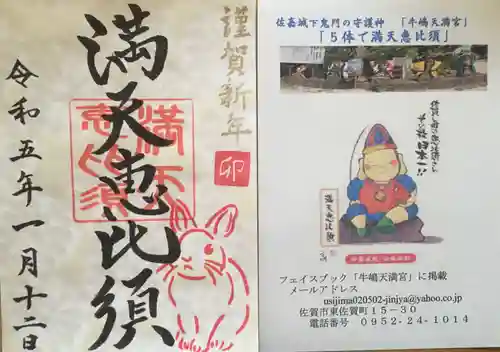 謹賀新年
卯
満天恵比須
満天恵比須
令和五年一月十二日
佐嘉城下鬼門の守護神 「牛嶋天満宮」
「5体で満天恵比須」
日本一!!
満天恵比須
フェイスブック「牛嶋天満宮」に掲載
メールアドレス
usijima020502-jinjya@yahoo.co.jp
佐賀市東佐賀町15-30
電話番号 0952-24-1014